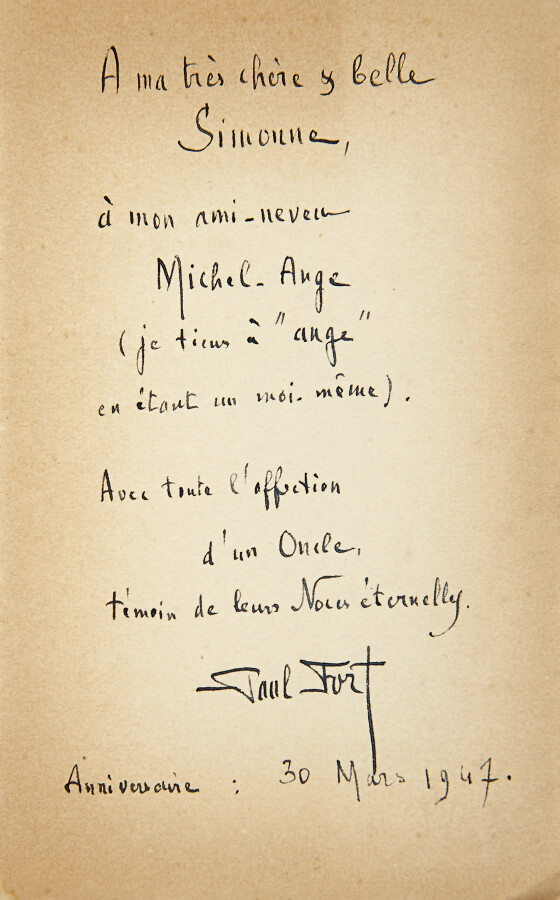 A ma très chère & belle
Simonne,
à mon ami-neveu
Michel-Ange
(je tiens à "ange"
en étant un moi-même).
Avec toute l'affection
d'un Oncle,
témoin de leurs Noces éternelles.
Paul Fort
Anniversaire : 30 Mars 1947.